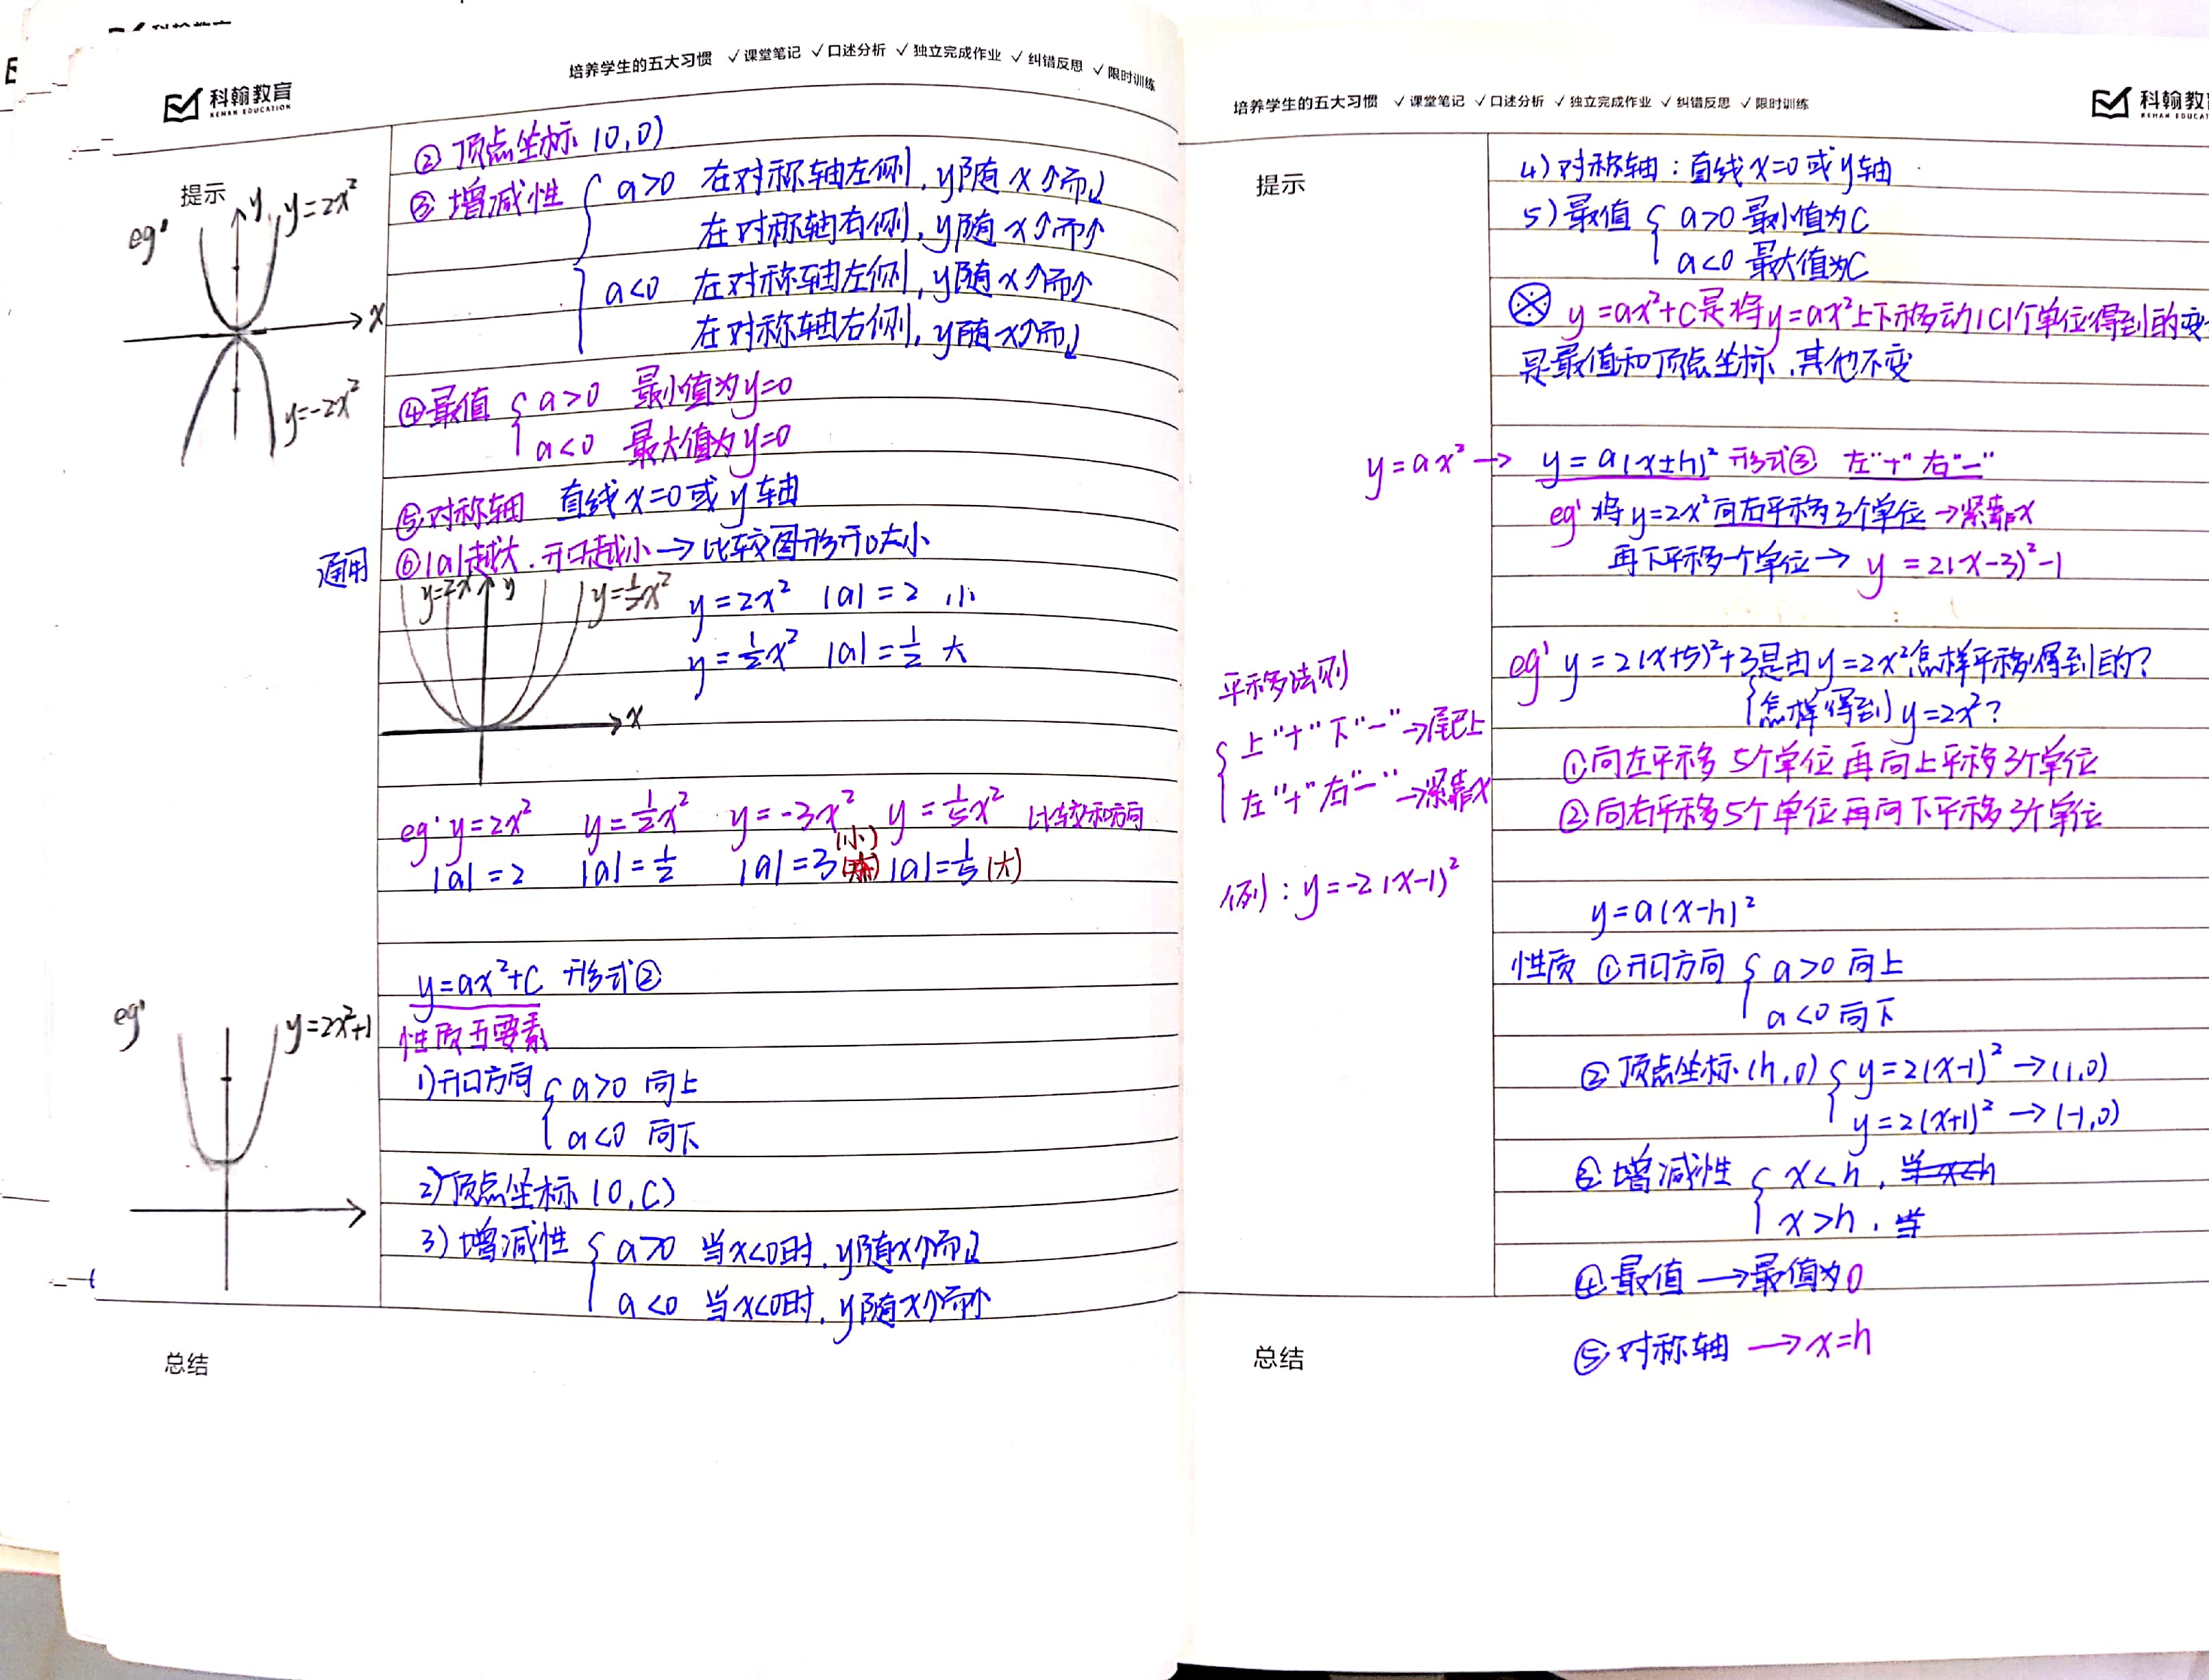 科翰教育
KEHAN EDUCATION
培养学生的五大习惯 ✓课堂笔记 ✓口述分析 ✓独立完成作业 ✓纠错反思 ✓限时训练
提示
eg'
y y=2x²
x
y=-2x²
② 顶点坐标 (0,0)
③ 增减性 { a>0 在对称轴左侧,y随x↑而↓
在对称轴右侧,y随x↑而↑
a<0 在对称轴左侧,y随x↑而↑
在对称轴右侧,y随x↑而↓
④最值 { a>0 最小值为y=0
a<0 最大值为y=0
⑤对称轴 直线x=0或y轴
通用 ⑥|a|越大.开口越小→比较图形开口大小
y y=½x² y=2x² |a|=2 小
y=½x² |a|=½ 大
x
eg' y=2x² y=½x² y=-3x² y=⅕x² 比较和方向
(小)
|a|=2 |a|=½ |a|=3 |a|=⅕(大)
y=ax²+C 形式②
性质五要素
1)开口方向 { a>0 向上
a<0 向下
2)顶点坐标(0,C)
3)增减性 { a>0 当x<0时.y随x↑而↓
a<0 当x<0时.y随x↑而↑
eg' y=2x²+1
总结
培养学生的五大习惯 ✓课堂笔记 ✓口述分析 ✓独立完成作业 ✓纠错反思 ✓限时训练
科翰教
KEHAN EDUCAT
提示
4)对称轴:直线x=0或y轴
5)最值 { a>0 最小值为C
a<0 最大值为C
※ y=ax²+C是将y=ax²上下移动|C|个单位得到的变
是最值和顶点坐标.其他不变
y=ax² → y=a(x±h)² 形式③ 左"+"右"-"
eg' 将y=2x²向右平移3个单位→紧靠x
再下平移一个单位→ y=2(x-3)²-1
eg' y=2(x+5)²+3是由y=2x²怎样平移得到的?
{怎样得到y=2x²?
①向左平移5个单位再向上平移3个单位
②向右平移5个单位再向下平移3个单位
平移法则
{ 上"+"下"-"→尾巴上
左"+"右"-"→紧靠x
例:y=-2(x-1)²
y=a(x-h)²
性质 ①开口方向 { a>0 向上
a<0 向下
②顶点坐标(h,0) { y=2(x-1)² →(1,0)
y=2(x+1)² →(-1,0)
③增减性 { x<h, 当x<h
x>h, 当
④最值 →最值为0
⑤对称轴 →x=h
总结